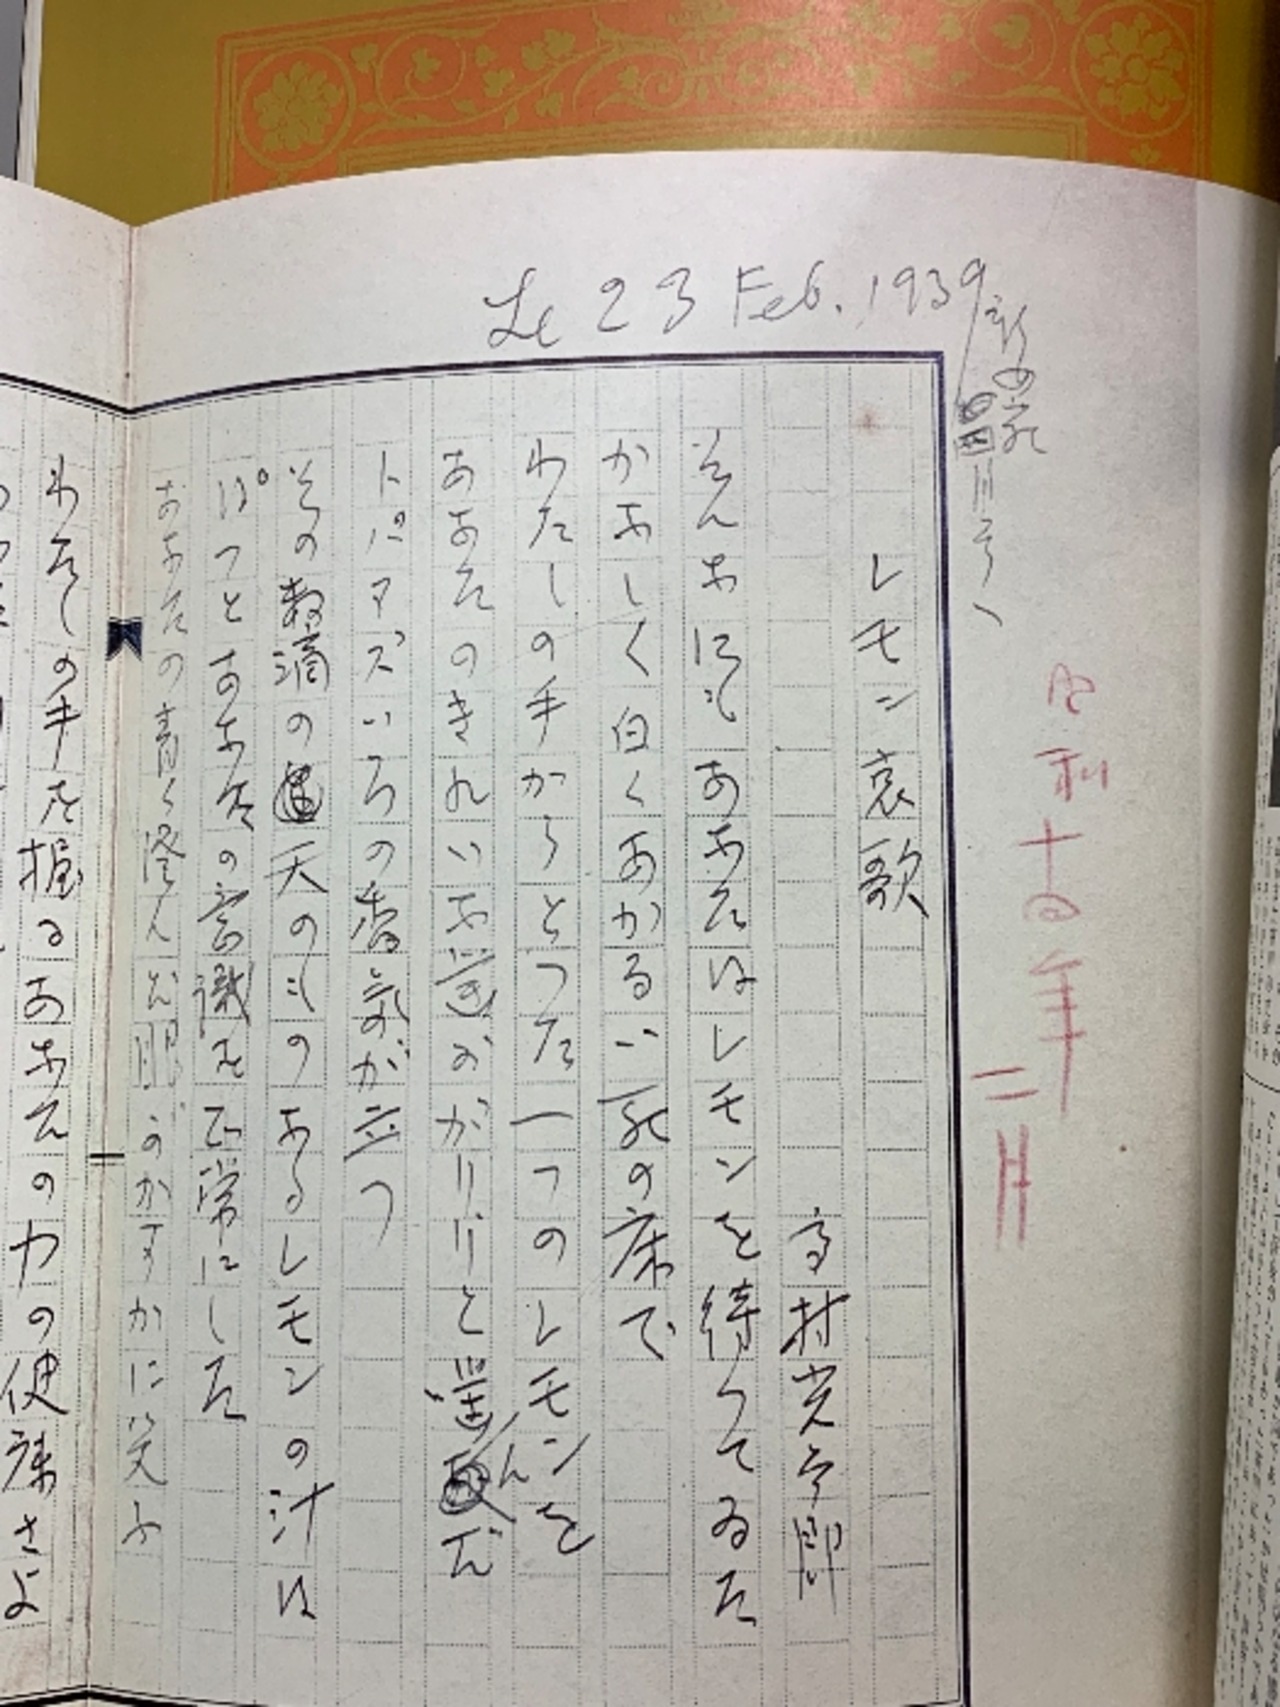 Le 23 Feb. 1939
新女苑
四月号へ
昭和十四年
二月
レモン哀歌
高村光太郎
そんなにもあなたはレモンを待つてゐた
かなしく白くあかるい死の床で
わたしの手からとつた一つのレモンを
あなたのきれいな歯ががりりと噛んだ
トパアズいろの香気が立つ
その数滴の天のものなるレモンの汁は
ぱつとあなたの意識を正常にした
あなたの青く澄んだ眼がかすかに笑ふ
わたしの手を握るあなたの力の健康さよ